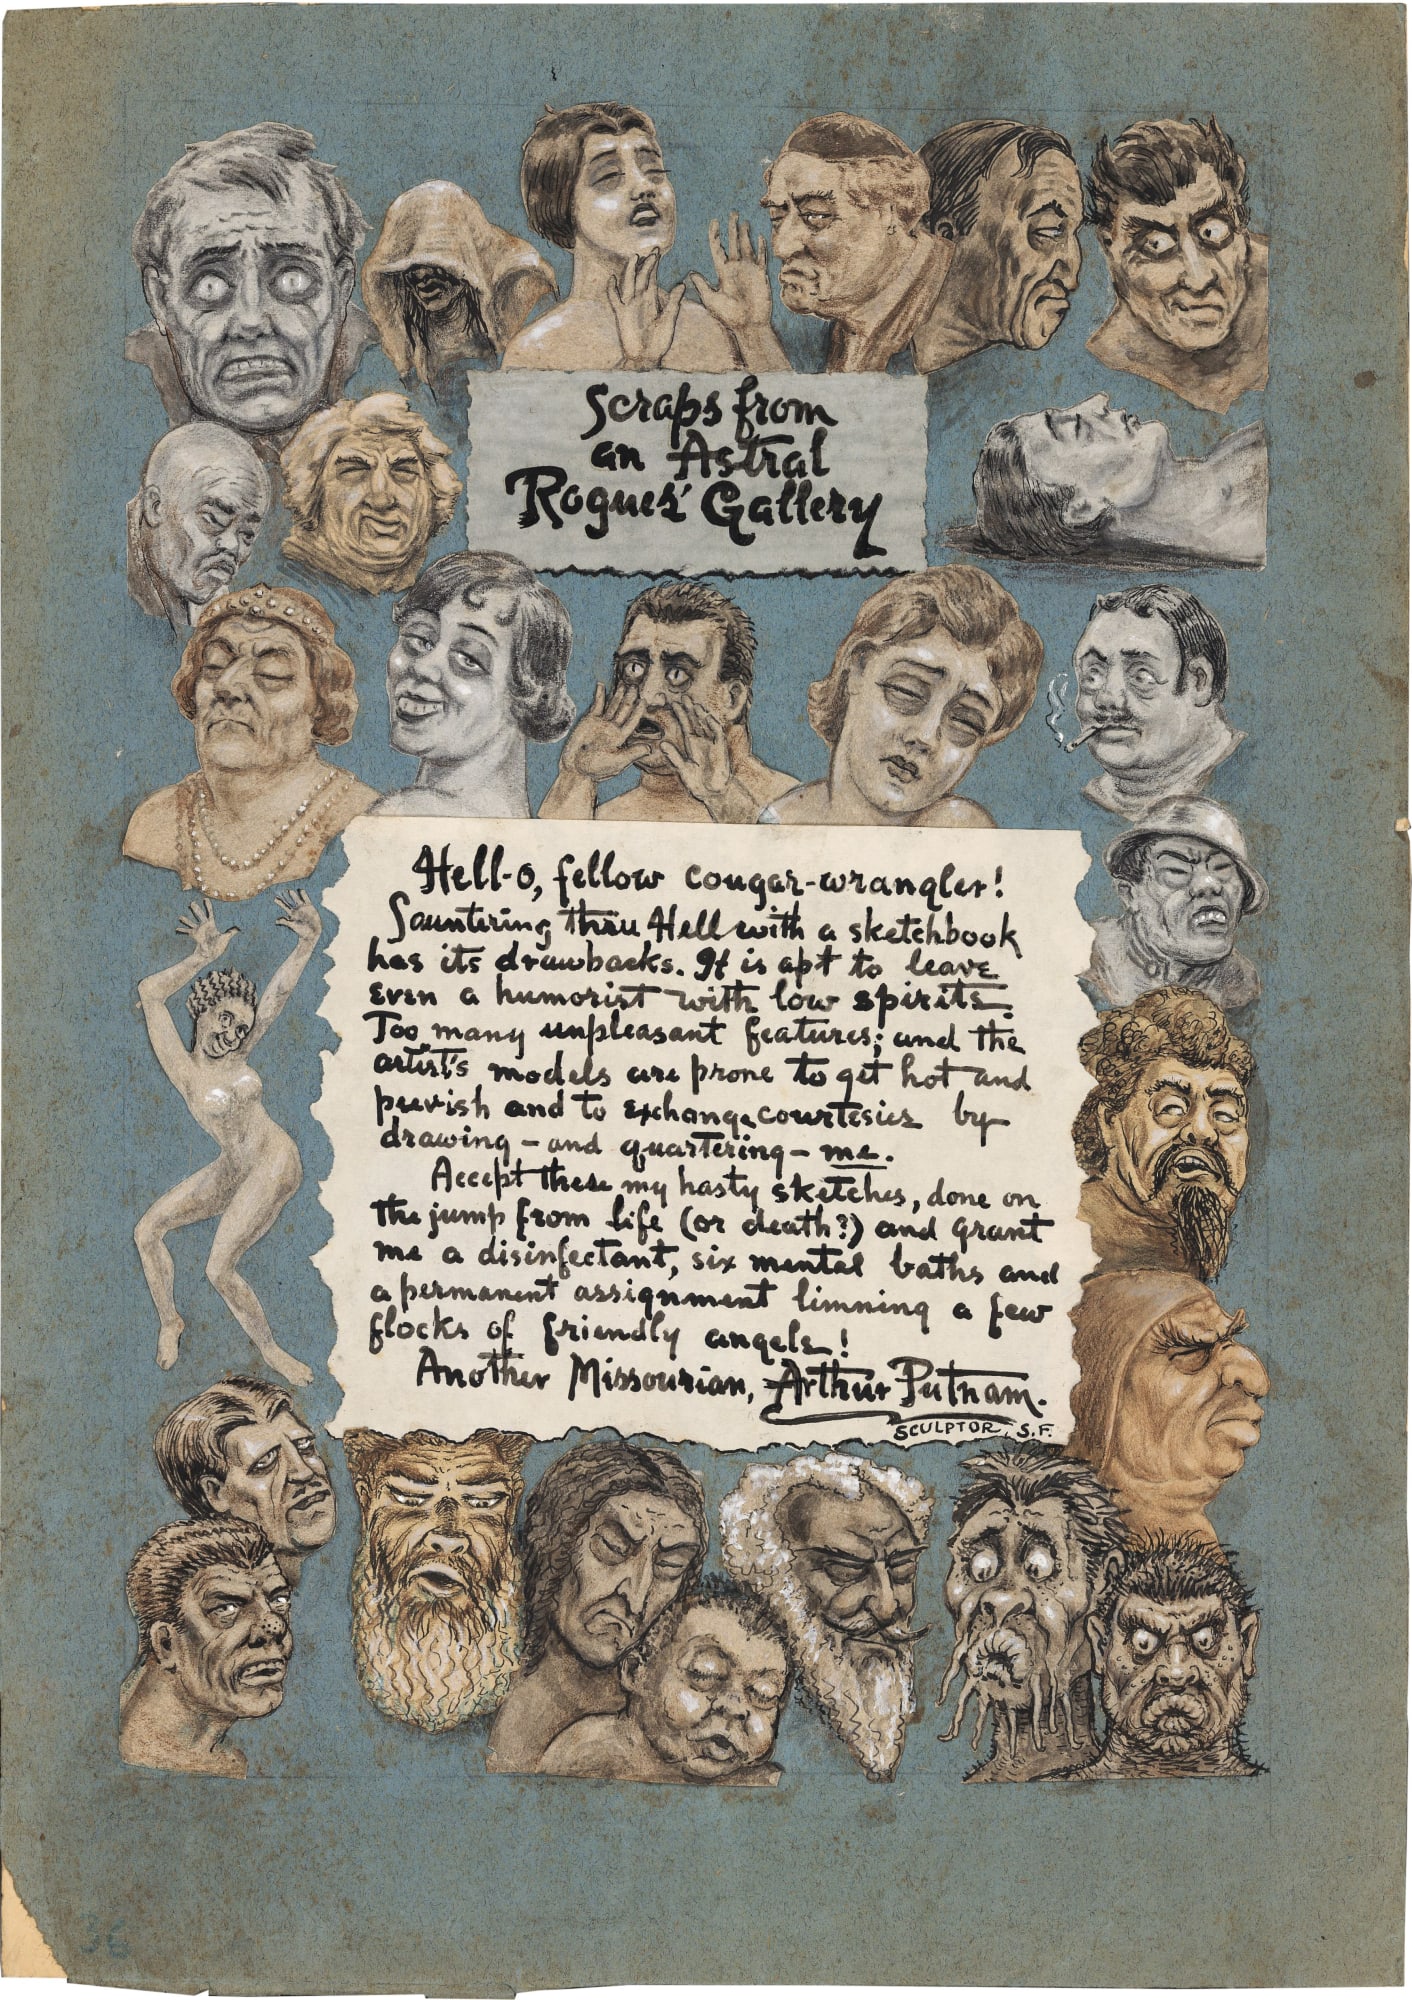 Scraps from
an Astral
Rogues' Gallery
Hell-o, fellow cougar-wrangler!
Sauntering thru Hell with a sketchbook
has its drawbacks. It is apt to leave
even a humorist with low spirits.
Too many unpleasant features; and the
artist's models are prone to get hot and
peevish and to exchange courtesies by
drawing - and quartering - me.
Accept these my hasty sketches, done on
the jump from life (or death?) and grant
me a disinfectant, six mental baths and
a permanent assignment limning a few
flocks of friendly angels!
Another Missourian, Arthur Putnam.
SCULPTOR, S.F.
36